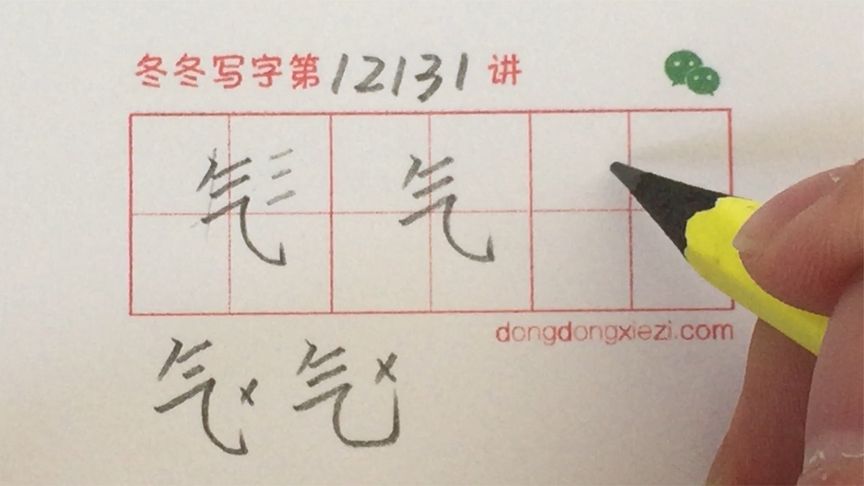 冬冬写字第12131讲
气 气
dongdongxiezi.com
气x 气x